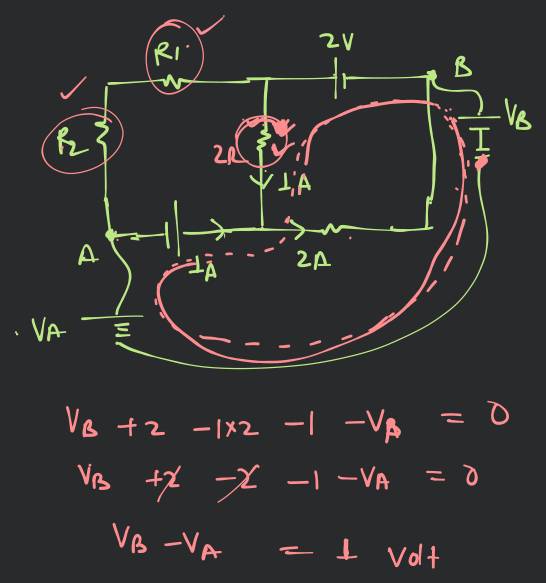 R1
2V
B
VB
R2
2R
1A
A
1A
2A
VA
VB + 2 - 1×2 - 1 - VA = 0
VB + 2 - 2 - 1 - VA = 0
VB - VA = 1 Volt